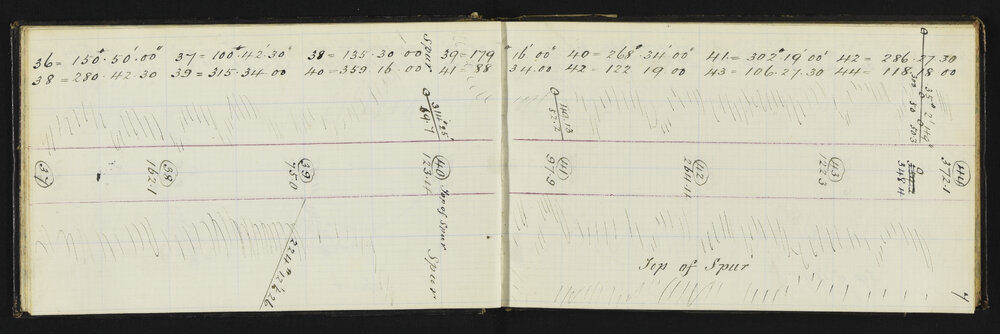 36 = 150° 50' 00" 37 = 100° 42' 30" 38 = 135 . 30 . 00 39 = 179 ° 16' 00" 40 = 268° 34' 00" 41 = 302° 19' 00" 42 = 286 . 27 . 30
38 = 280 . 42 . 30 39 = 315 . 34 . 00 40 = 359 . 16 . 00 41 = 88 34 . 00 42 = 122 19 00 43 = 106 . 27 . 30 44 = 118 . 18 . 00
Spur
37
38
162.1
39
75.0
40
123.4
Top of Spur
Spur
41
97.9
42
264.4
43
122.3
348.4
44
372.1
Top of Spur